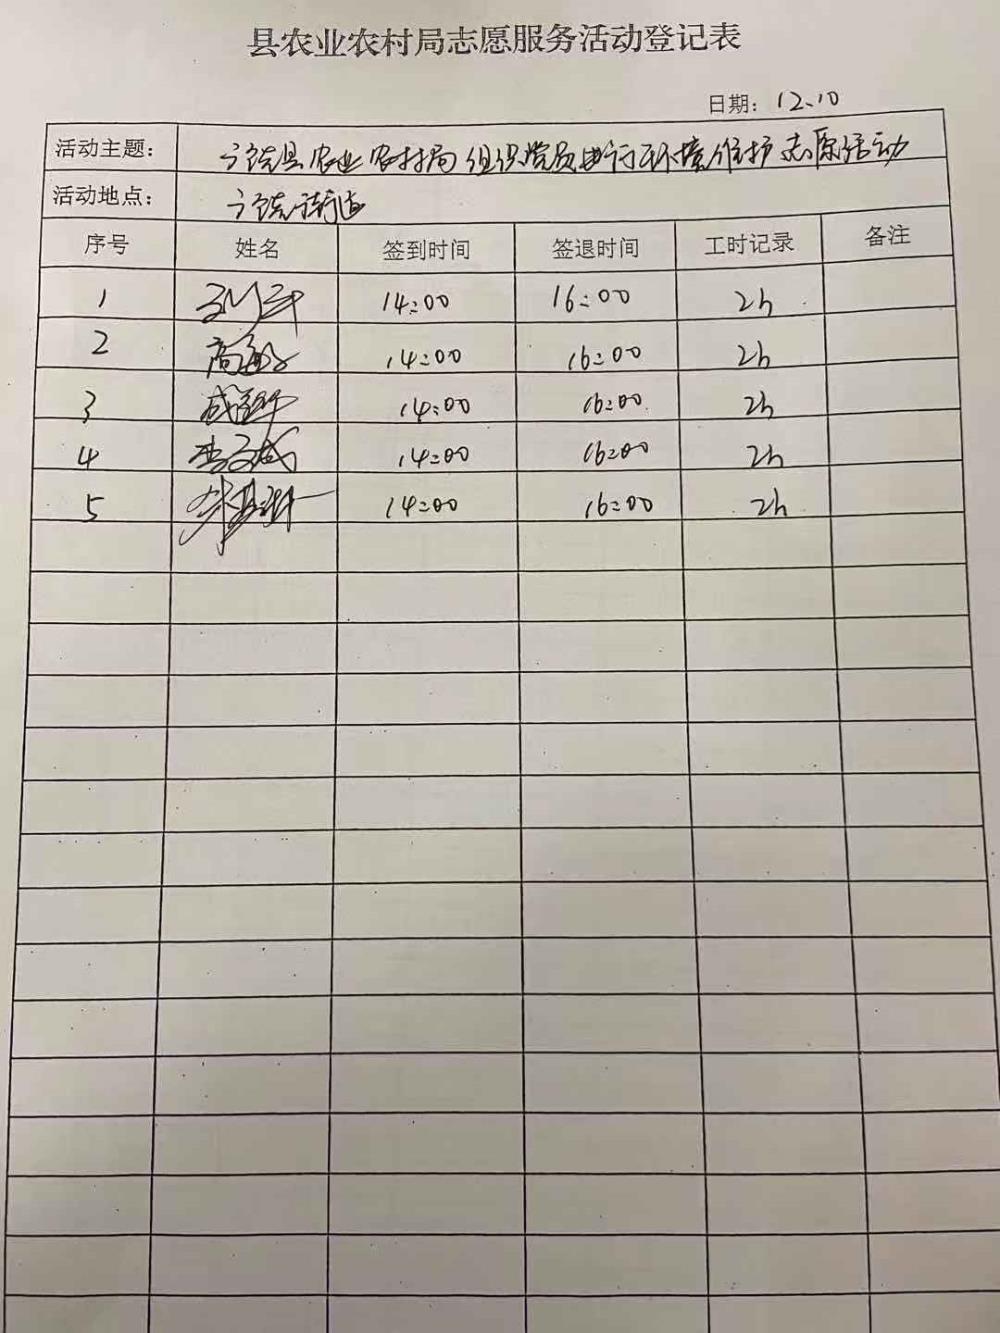 县农业农村局志愿服务活动登记表
日期: 12.10
活动主题: 县农业农村局组织党员进行环境维护志愿活动
活动地点: 街道
序号 姓名 签到时间 签退时间 工时记录 备注
1 14:00 16:00 2h
2 14:00 16:00 2h
3 14:00 16:00 2h
4 14:00 16:00 2h
5 14:00 16:00 2h